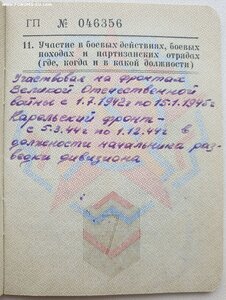 ГП № 046356
11. Участие в боевых действиях, боевых
походах и партизанских отрядах
(где, когда и в какой должности)
Участвовал на фронтах
Великой Отечественной
войны с 1.7.1942г по 15.1.1945г
Карельский фронт-
с 5.3.44г по 1.12.44г в
должности начальника раз-
ведки дивизиона